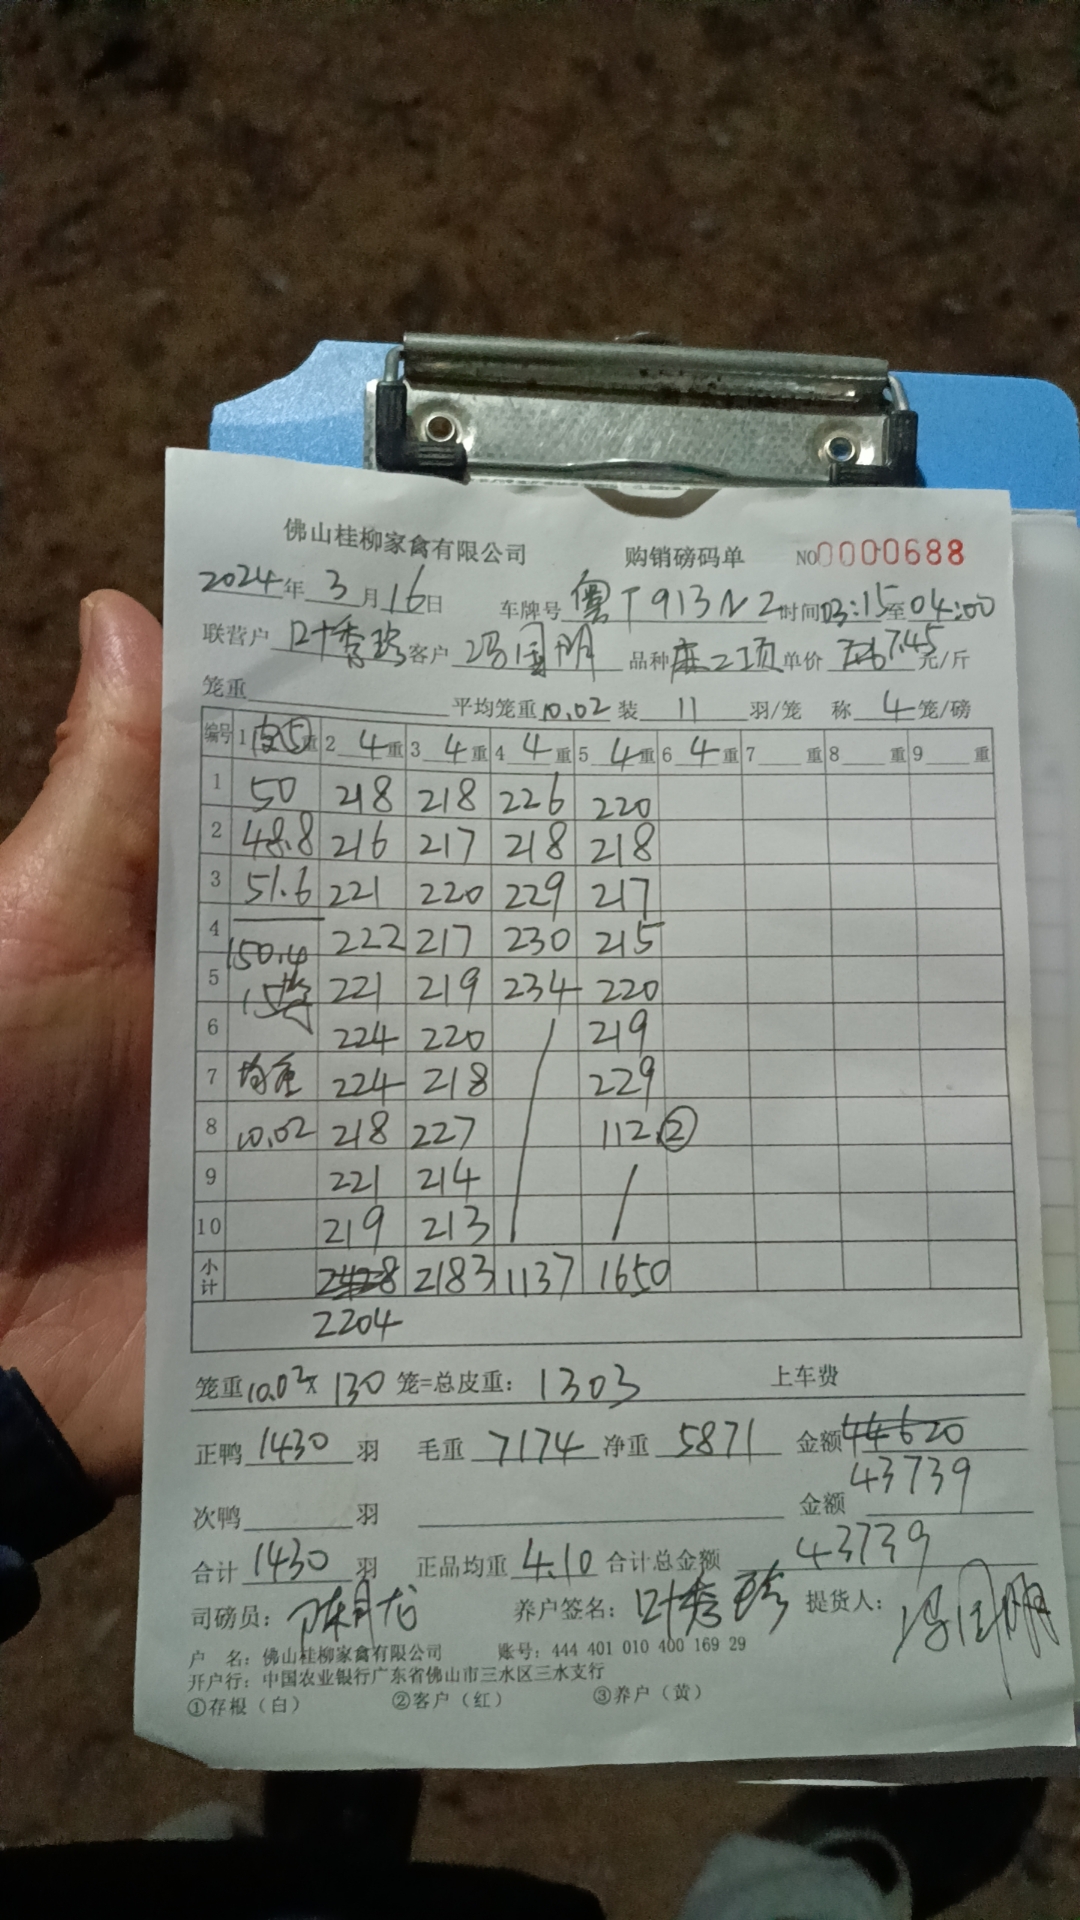 佛山桂柳家禽有限公司 购销磅码单 NO0000688
2024年3月16日 车牌号 粤T913N2 时间03:15至04:00
联营户 叶秀珍 客户 冯国明 品种 二顶 单价 7.45元/斤
笼重 平均笼重10.02 装 11 羽/笼 称 4 笼/磅
编号 1 皮⑤重 2 4重 3 4重 4 4重 5 4重 6 4重 7 重 8 重 9 重
1 50 218 218 226 220
2 48.8 216 217 218 218
3 51.6 221 220 229 217
4 150.4 222 217 230 215
5 15笼 221 219 234 220
6 224 220 219
7 均重 224 218 229
8 10.02 218 227 112②
9 221 214
10 219 213
小计 2183 1137 1650
2204
笼重10.02x 130 笼=总皮重: 1303 上车费
正鸭 1430 羽 毛重 7174 净重 5871 金额44620
43739
次鸭 羽 金额
合计 1430 羽 正品均重 4.10 合计总金额 43739
司磅员: 养户签名: 叶秀珍 提货人: 冯国明
户 名: 佛山桂柳家禽有限公司 账号: 444 401 010 400 169 29
开户行: 中国农业银行广东省佛山市三水区三水支行
①存根（白） ②客户（红） ③养户（黄）